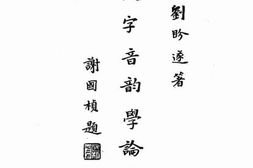 劉盼遂著
字音韵學論
謝國楨題